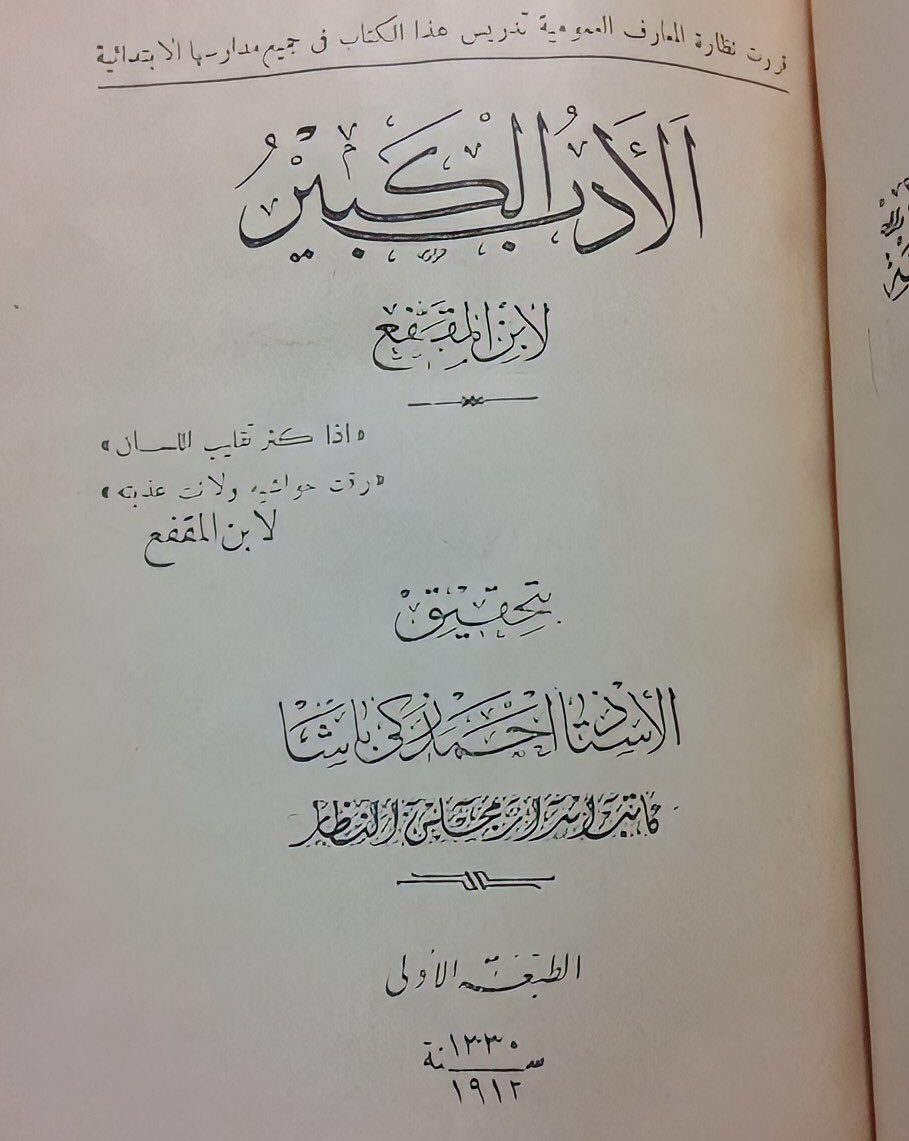 قررت نظارة المعارف العمومية تدريس هذا الكتاب فى جميع مدارسها الابتدائية
اَلْأَدَبُ الْكَبِيْرُ
لِابْنِ الْمُقَفَّعِ
«اذا كثر تقليب اللسان»
«رقت حواشيه ولانت عذبته»
لابن المقفع
بتحقيق
الأستاذ احمد زكى باشا
كاتب اسرار مجلس النظار
الطبعة الأولى
سنة ١٣٣٠
١٩١٢